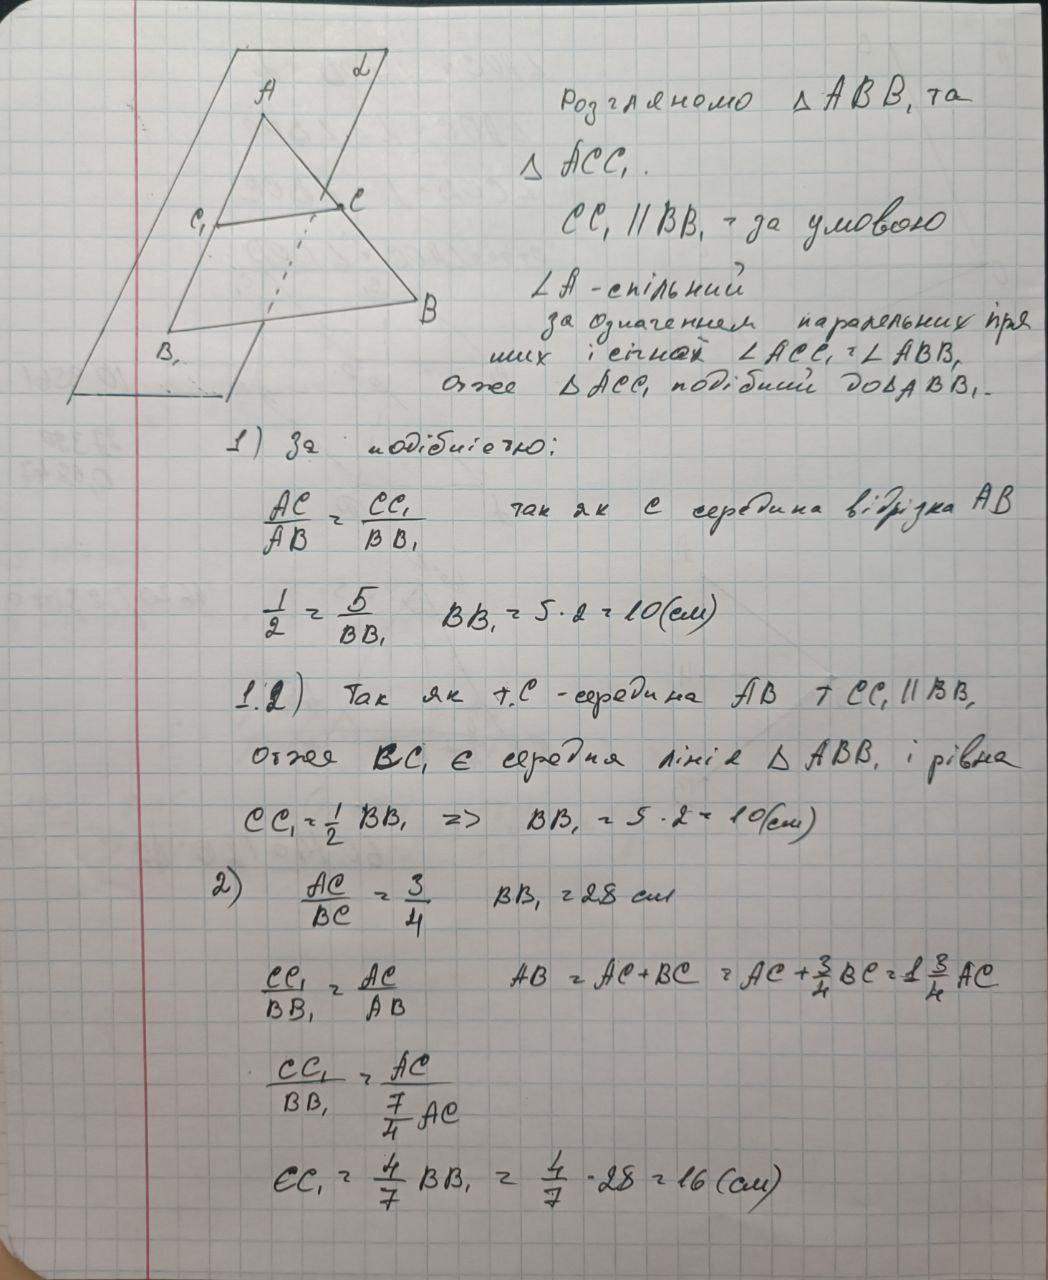 α
A
C₁
C
B
B₁
Розгляномо △ ABB₁ та
△ ACC₁.
CC₁ || BB₁ - за умовою
∠A - спільний
за означенням паралельних пря
мих і січної ∠ACC₁ = ∠ABB₁
отже △ ACC₁ подібний до △ABB₁.
1) За подібністю:
AC/AB = CC₁/BB₁ так як C середина відрізка AB
1/2 = 5/BB₁ BB₁ = 5 · 2 = 10(см)
1.2) Так як т.C - середина AB т CC₁ || BB₁
отже BC₁ є середня лінія △ ABB₁ і рівна
CC₁ = 1/2 BB₁ => BB₁ = 5 · 2 = 10(см)
2) AC/BC = 3/4 BB₁ = 28 см
CC₁/BB₁ = AC/AB AB = AC + BC = AC + 3/4 BC = 1 3/4 AC
CC₁/BB₁ = AC/(7/4 AC)
CC₁ = 4/7 BB₁ = 4/7 · 28 = 16 (см)